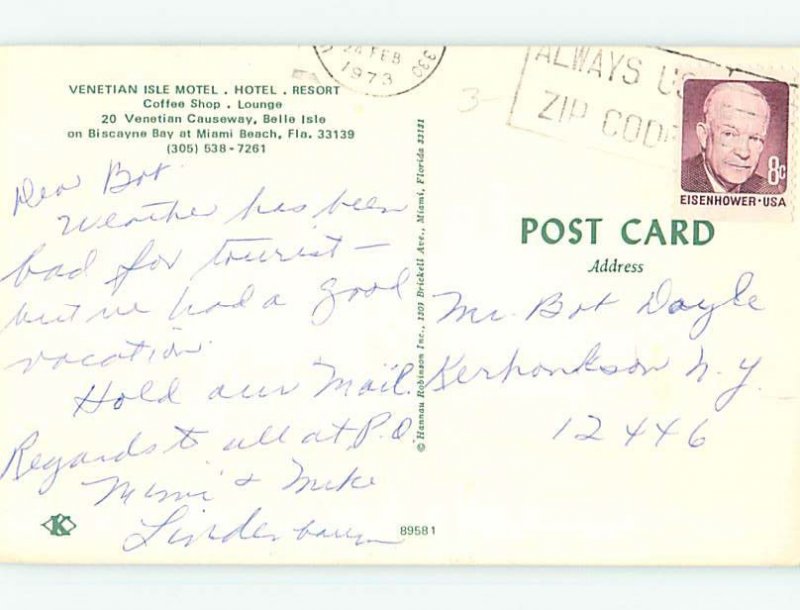 VENETIAN ISLE MOTEL . HOTEL . RESORT
Coffee Shop . Lounge
20 Venetian Causeway, Belle Isle
on Biscayne Bay at Miami Beach, Fla. 33139
(305) 538-7261
Dear Bob
Weather has been
bad for tourist —
but we had a good
vacation.
Hold our Mail.
Regards to all at P.O.
Mimi & Mike
Lindenbaum
K
89581
© Hannau Robinson Inc., 1309 Brickell Ave., Miami, Florida 33131
24 FEB
1973
330
ALWAYS US
ZIP CODE
3-
8c
EISENHOWER·USA
POST CARD
Address
Mr. Bob Doyle
Kerhonkson N.Y.
12446